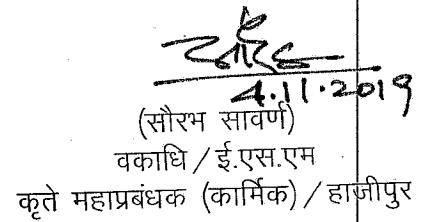 4.11.2019
(सौरभ सावर्ण)
वकाधि / ई.एस.एम
कृते महाप्रबंधक (कार्मिक) / हाजीपुर